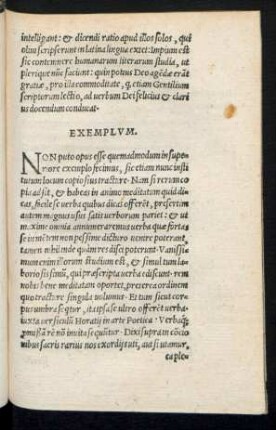 intelligant: & dicendi ratio apud illos solos, qui
olim scripserunt in latina lingua extet. Impium est
sic contemnere humanarum literarum studia, ut
pleriq́ue nũc faciunt: quin potius Deo agẽdæ erãt
gratiæ, pro illa commoditate, q, etiam Gentilium
scriptorum lectio, ad uerbum Dei felicius & clari
us docendum conducat.
EXEMPLVM.
NON puto opus esse quemadmodum in supe
riore exemplo fecimus, sic etiam nunc insti
tutum locum copiosius tractare. Nam si rerum co
pia adsit, & habeas in animo meditatum quid di
cas, facile se uerba quibus dicas offerẽt, præsertim
autem magnus usus satis uerborum pariet: & ut
maxime omnia annumeraremus uerba quæ forta s
se in mẽtem non pessime dicturo uenire poterant,
tamen nihil modo quin ea res disci poterunt. Vanissi
mum enim illorum studium est, & simul tam la
boriosissimũ, qui præscripta uerba ediscunt: rem
nobis bene meditatam oportet, præterea ordinem
quo tractare singula uolumus. Et tum sicut cor=
pus umbra seq̃tur, ita ipsa se ultro offerẽt uerba
iuxta uersiculũ Horatij in arte Poetica. Verbaq́;
puisã rẽ nõ inuita sequũtur. Dixi supram cõcio
nibus sacris rarius nos exordijs uti, aut si utamur,
ea ple=